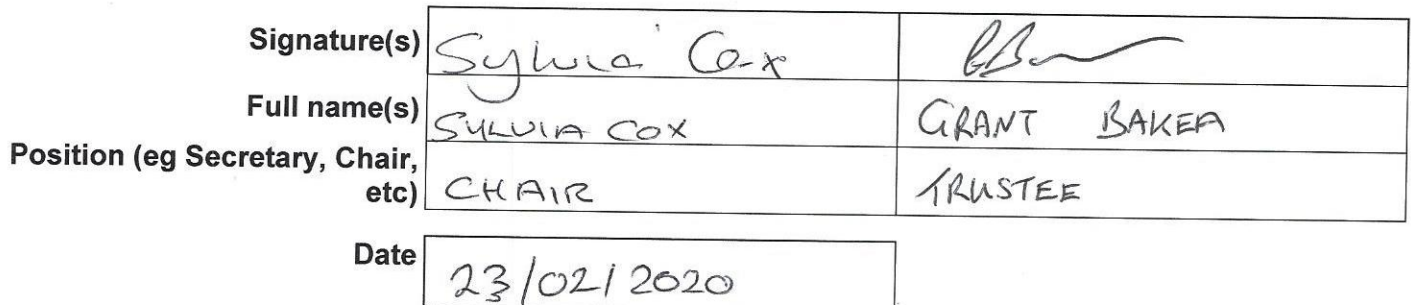 Signature(s) Sylvia Cox
Full name(s) SYLVIA COX GRANT BAKER
Position (eg Secretary, Chair,
etc) CHAIR TRUSTEE
Date 23/02/2020